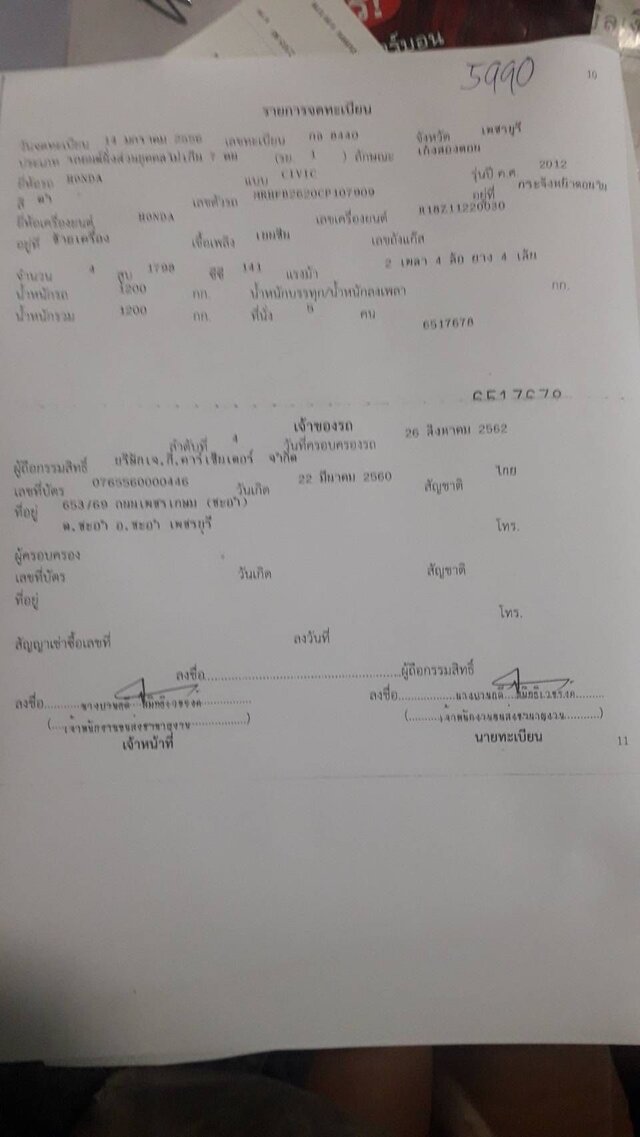 ร์บอน
5990
10
รายการจดทะเบียน
วันจดทะเบียน 14 มกราคม 2556 เลขทะเบียน กล 8440 จังหวัด เพชรบุรี
ประเภท รถยนต์นั่งส่วนบุคคลไม่เกิน 7 คน (รย. 1 ) ลักษณะ เก๋งสองตอน
ยี่ห้อรถ HONDA แบบ CIVIC รุ่นปี ค.ศ. 2012
สี เลขตัวรถ MRHFB2620CP107909 อยู่ที่
ยี่ห้อเครื่องยนต์ HONDA เลขเครื่องยนต์ R18Z11220030
อยู่ที่ ซ้ายเครื่อง เชื้อเพลิง เบนซิน เลขถังแก๊ส
จำนวน 4 สูบ 1798 ซีซี 141 แรงม้า 2 เพลา 4 ล้อ ยาง 4 เส้น
น้ำหนักรถ 1200 กก. น้ำหนักบรรทุก/น้ำหนักลงเพลา กก.
น้ำหนักรวม 1200 กก. ที่นั่ง 5 คน
6517678
เจ้าของรถ
ลำดับที่ 4 วันที่ครอบครองรถ 26 สิงหาคม 2562
ผู้ถือกรรมสิทธิ์ จำกัด
เลขที่บัตร 0765560000446 วันเกิด 22 มีนาคม 2560 สัญชาติ ไทย
ที่อยู่ 653/69 ถนนเพชรเกษม (ชะอำ)
ต.ชะอำ อ.ชะอำ เพชรบุรี โทร.
ผู้ครอบครอง
เลขที่บัตร วันเกิด สัญชาติ
ที่อยู่
โทร.
สัญญาเช่าซื้อเลขที่ ลงวันที่
ลงชื่อ ผู้ถือกรรมสิทธิ์
ลงชื่อ ลงชื่อ
เจ้าหน้าที่ นายทะเบียน
11